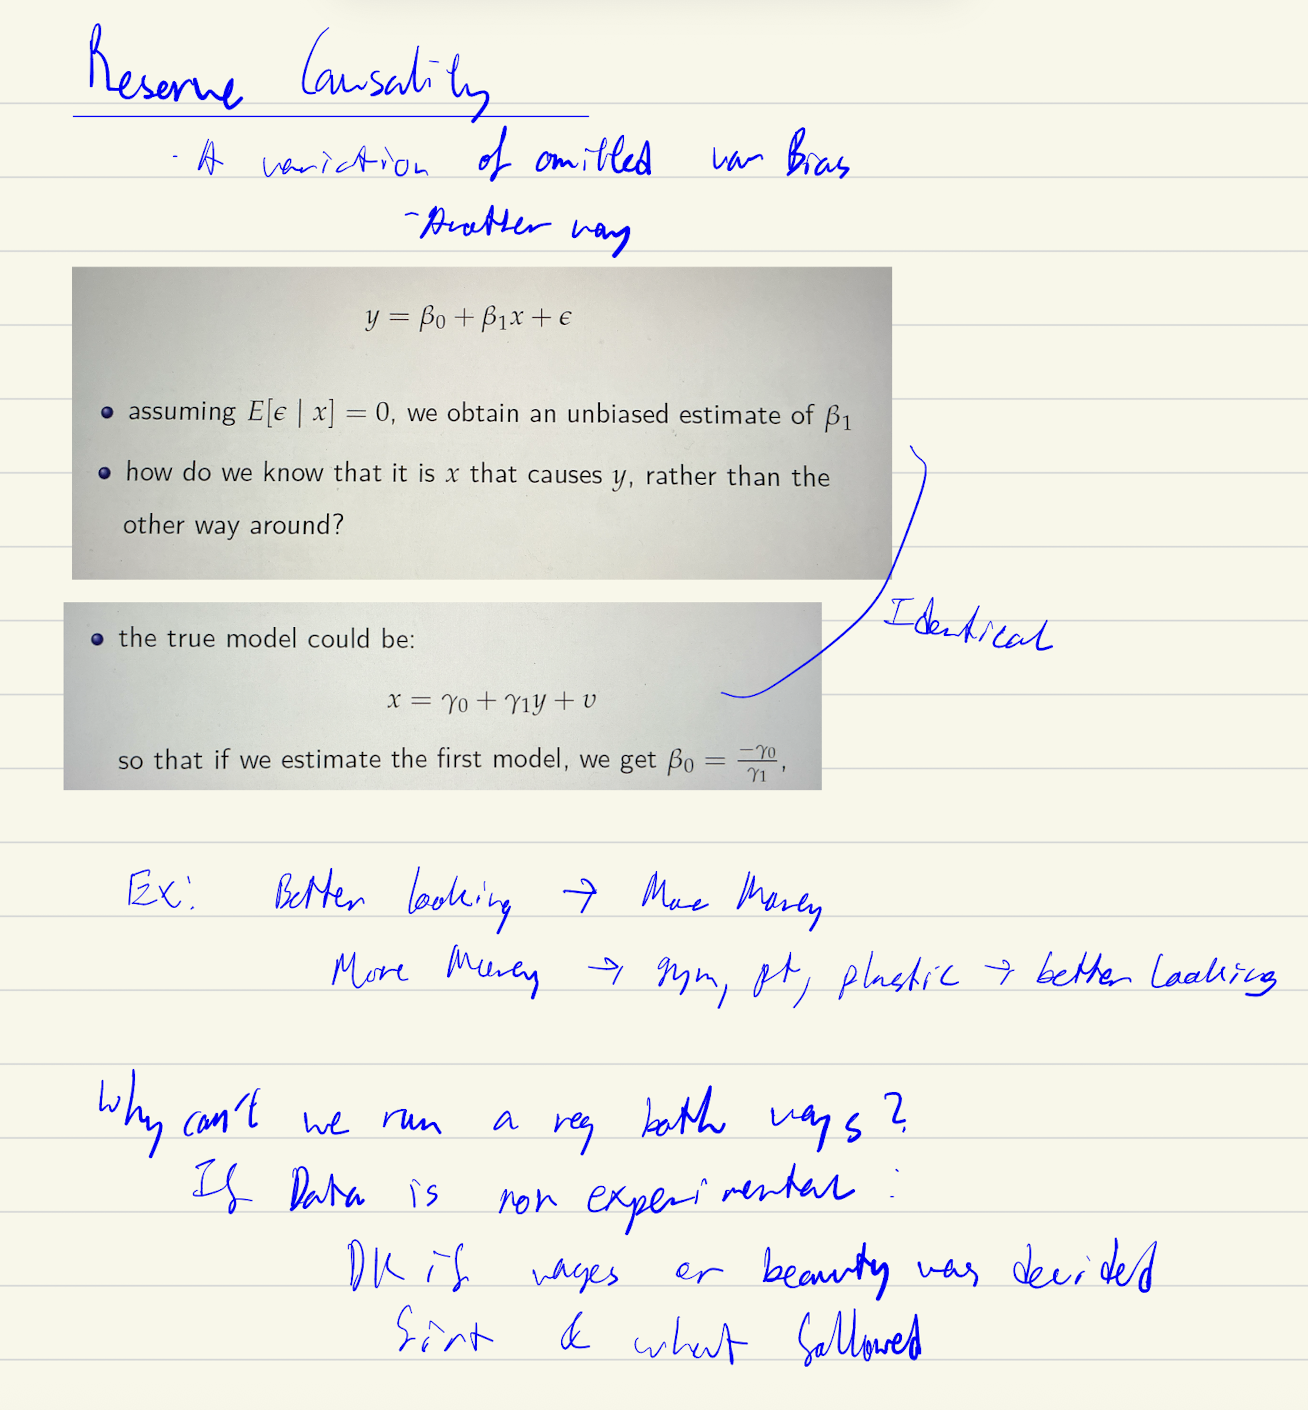 Reserve Causality
· A variation of omitted var Bias
- Another way
y = β₀ + β₁x + ϵ
• assuming E[ϵ | x] = 0, we obtain an unbiased estimate of β₁
• how do we know that it is x that causes y, rather than the
other way around?
Identical
• the true model could be:
x = γ₀ + γ₁y + υ
so that if we estimate the first model, we get β₀ = −γ₀/γ₁,
Ex: Better looking → More Money
More Money → gym, pt, plastic → better looking
Why can't we run a reg both ways?
If Data is non experimental :
DK if wages or beauty was decided
first & what followed